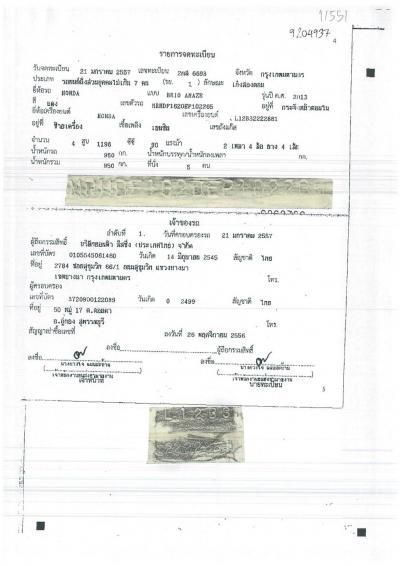 11551
9204937
4
รายการจดทะเบียน
วันจดทะเบียน 21 มกราคม 2557 เลขทะเบียน 2กผ 6693 จังหวัด กรุงเทพมหานคร
ประเภท รถยนต์นั่งส่วนบุคคลไม่เกิน 7 คน (รย. 1 ) ลักษณะ เก๋งสองตอน
ยี่ห้อรถ HONDA แบบ BRIO AMAZE รุ่นปี ค.ศ. 2013
สี แดง เลขตัวรถ อยู่ที่
ยี่ห้อเครื่องยนต์ HONDA เลขเครื่องยนต์ L12B32222881
อยู่ที่ เชื้อเพลิง เบนซิน เลขถังแก๊ส
จำนวน 4 สูบ 1198 ซีซี 90 แรงม้า 2 เพลา 4 ล้อ ยาง 4 เส้น
น้ำหนักรถ 950 กก. น้ำหนักบรรทุก/น้ำหนักลงเพลา กก.
น้ำหนักรวม 950 กก. ที่นั่ง 5 คน
เจ้าของรถ
ลำดับที่ 1. วันที่ครอบครองรถ 21 มกราคม 2557
ผู้ถือกรรมสิทธิ์ (ประเทศไทย) จำกัด
เลขที่บัตร 0105545061460 วันเกิด 14 มิถุนายน 2545 สัญชาติ ไทย
ที่อยู่ 2784 ซอยสุขุมวิท 66/1 ถนนสุขุมวิท แขวงบางนา
เขตบางนา กรุงเทพมหานคร โทร.
ผู้ครอบครอง
เลขที่บัตร 3720900122089 วันเกิด 0 2499 สัญชาติ ไทย
ที่อยู่ 50 หมู่ 17 ต.ดอนคา
อ.อู่ทอง สุพรรณบุรี โทร.
สัญญาเช่าซื้อเลขที่ ลงวันที่ 26 พฤศจิกายน 2556
ลงชื่อ ผู้ถือกรรมสิทธิ์
ลงชื่อ ลงชื่อ
เจ้าหน้าที่ นายทะเบียน
5
L1233